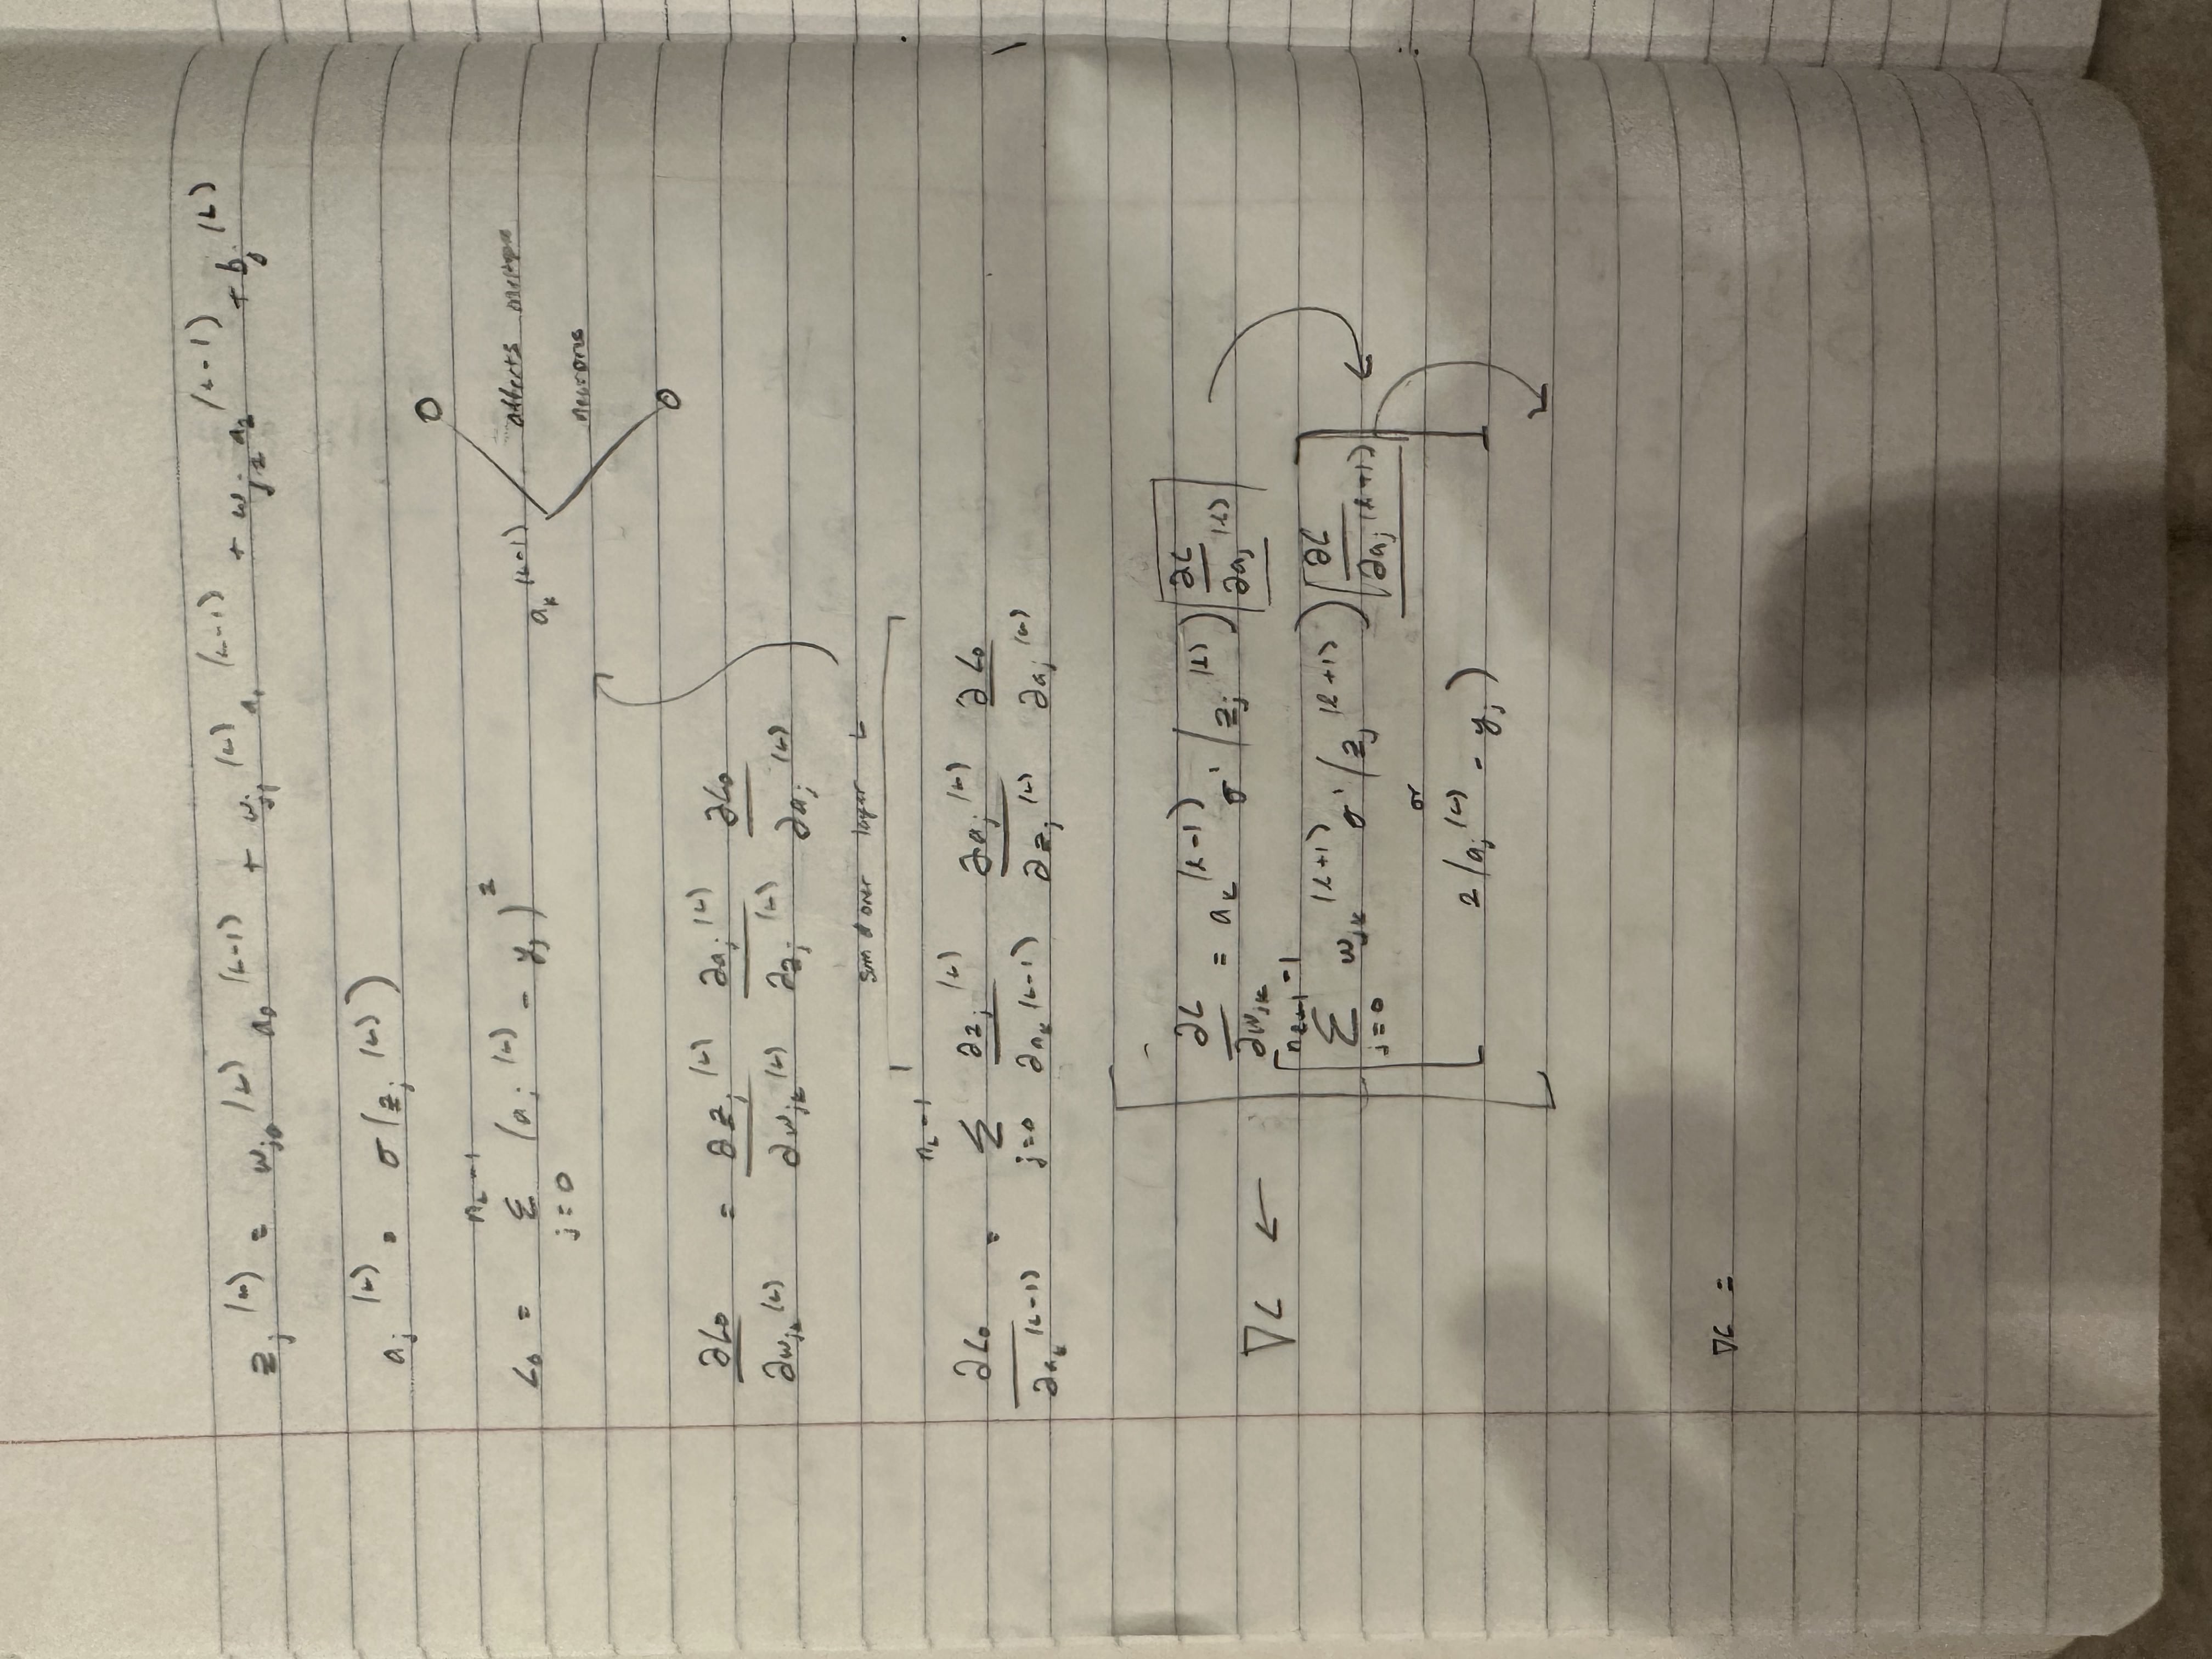 z_j^(L) = w_j0^(L) a_0^(L-1) + w_j1^(L) a_1^(L-1) + w_j2 a_2^(L-1) + b_j^(L)
a_j^(L) = σ(z_j^(L))
C_0 = Σ_{j=0}^{n_L-1} (a_j^(L) - y_j)^2
a_k^(L-1) affects multiple
neurons
∂C_0/∂w_jk^(L) = ∂z_j^(L)/∂w_jk^(L) ∂a_j^(L)/∂z_j^(L) ∂C_0/∂a_j^(L)
sum over layer L
∂C_0/∂a_k^(L-1) = Σ_{j=0}^{n_L-1} ∂z_j^(L)/∂a_k^(L-1) ∂a_j^(L)/∂z_j^(L) ∂C_0/∂a_j^(L)
∂C/∂w_jk = a_k^(l-1) σ'(z_j^(l)) ∂C/∂a_j^(l)
∇C ←
Σ_{j=0}^{n_{l+1}-1} w_jk^(l+1) σ'(z_j^(l+1)) ∂C/∂a_j^(l+1)
or
2(a_j^(L) - y_j)
∇C =